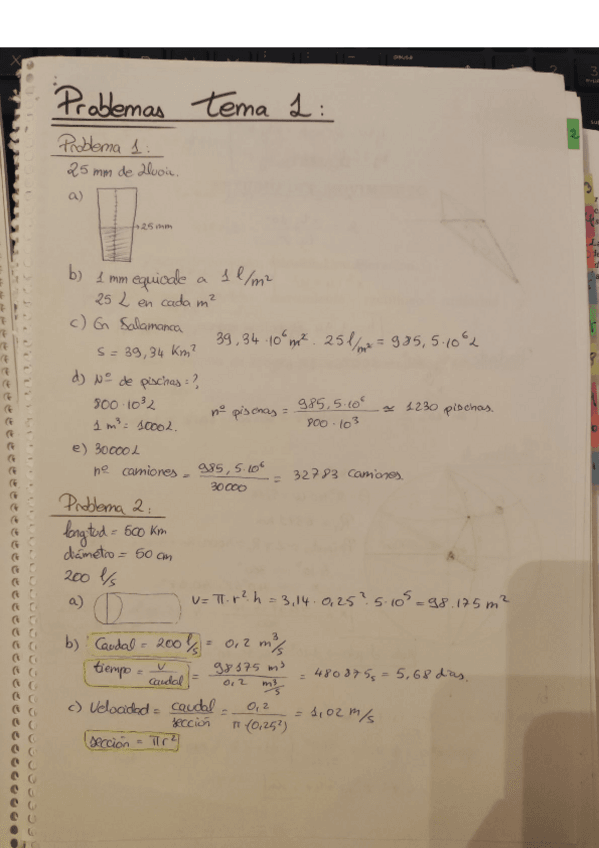 Problemas Tema 1:
Problema 1:
25 mm de lluvia.
a)
25 mm
b) 1 mm equivale a 1 l/m²
25 L en cada m²
c) En Salamanca
S = 39,34 Km²
39,34 · 10⁶ m² · 25 l/m² = 985,5 · 10⁶ L
d) Nº de piscinas = ?
800 · 10³ L
1 m³ = 1000 L.
nº piscinas = 985,5 · 10⁶ / 800 · 10³ ≃ 1230 piscinas.
e) 30000 L
nº camiones = 985,5 · 10⁶ / 30000 = 32783 camiones.
Problema 2:
longitud = 500 Km
diámetro = 50 cm
200 l/s
a) V = π · r² · h = 3,14 · 0,25² · 5 · 10⁵ = 98.175 m²
b) Caudal = 200 l/s = 0,2 m³/s
tiempo = V / caudal = 98175 m³ / 0,2 m³/s = 490875 s = 5,68 días.
c) Velocidad = caudal / sección = 0,2 / π · (0,25²) = 1,02 m/s
sección = π r²
2